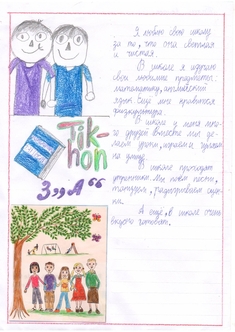 Я люблю свою школу
за то, что она светлая
и чистая.
В школе я изучаю
свои любимые предметы:
математику, английский
язык. Еще мне нравится
физкультура.
В школе у меня мно-
го друзей. Вместе мы де-
лаем уроки, играем и гуляем
на улице.
В школе проходят
утренники. Мы поем песни,
танцуем, разыгрываем сцен-
ки.
А еще, в школе очень
вкусно готовят.
Tik-
hon
3 "А"